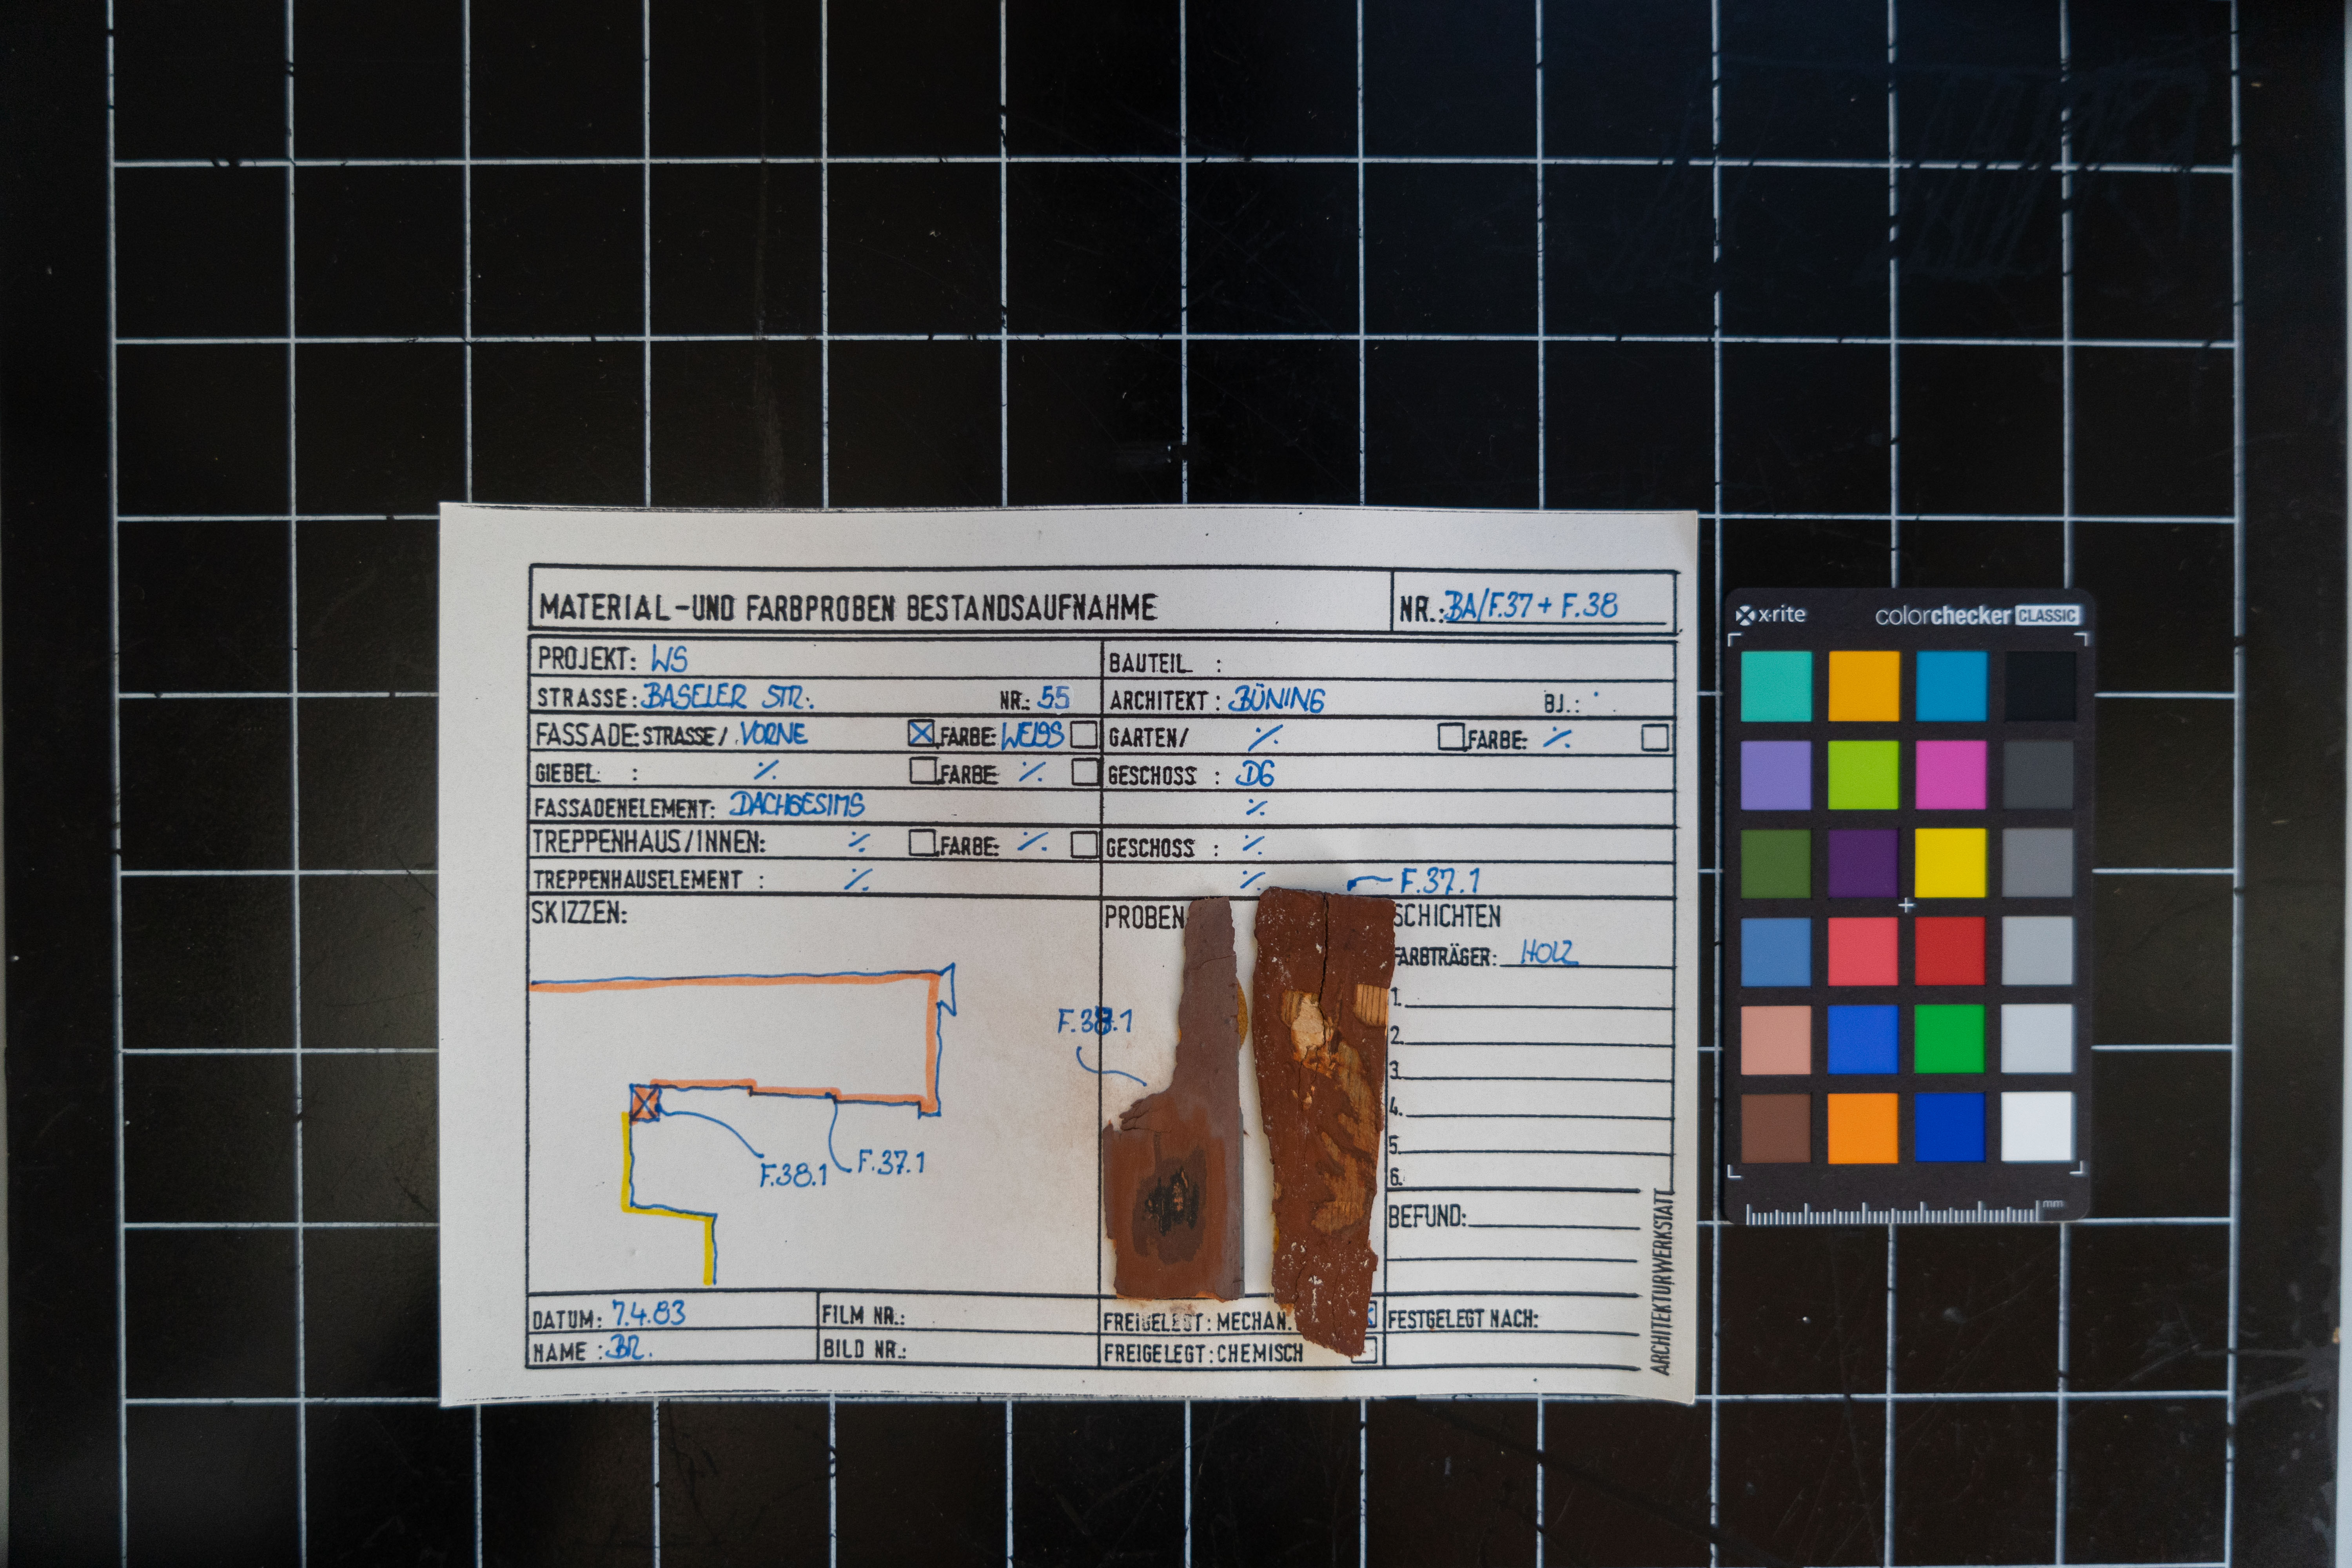 MATERIAL-UND FARBPROBEN BESTANDSAUFNAHME NR.: BA/F.37 + F.38
PROJEKT: WS BAUTEIL :
STRASSE: BASELER STR. NR.: 55 ARCHITEKT : BÜNING BJ.:
FASSADE: STRASSE/ VORNE FARBE: WEISS GARTEN/ ⁒ FARBE: ⁒
GIEBEL : ⁒ FARBE ⁒ GESCHOSS : DG
FASSADENELEMENT: DACHGESIMS ⁒
TREPPENHAUS/INNEN: ⁒ FARBE: ⁒ GESCHOSS : ⁒
TREPPENHAUSELEMENT : ⁒ ⁒ F.37.1
SKIZZEN: PROBEN SCHICHTEN
FARBTRÄGER: HOLZ
1.
F.38.1
2.
3.
4.
5.
6.
F.38.1 F.37.1
BEFUND:
DATUM: 7.4.83 FILM NR.: FREIGELEGT: MECHAN. FESTGELEGT NACH:
NAME : BR. BILD NR.: FREIGELEGT: CHEMISCH
ARCHITEKTURWERKSTATT
x-rite colorchecker CLASSIC
mm